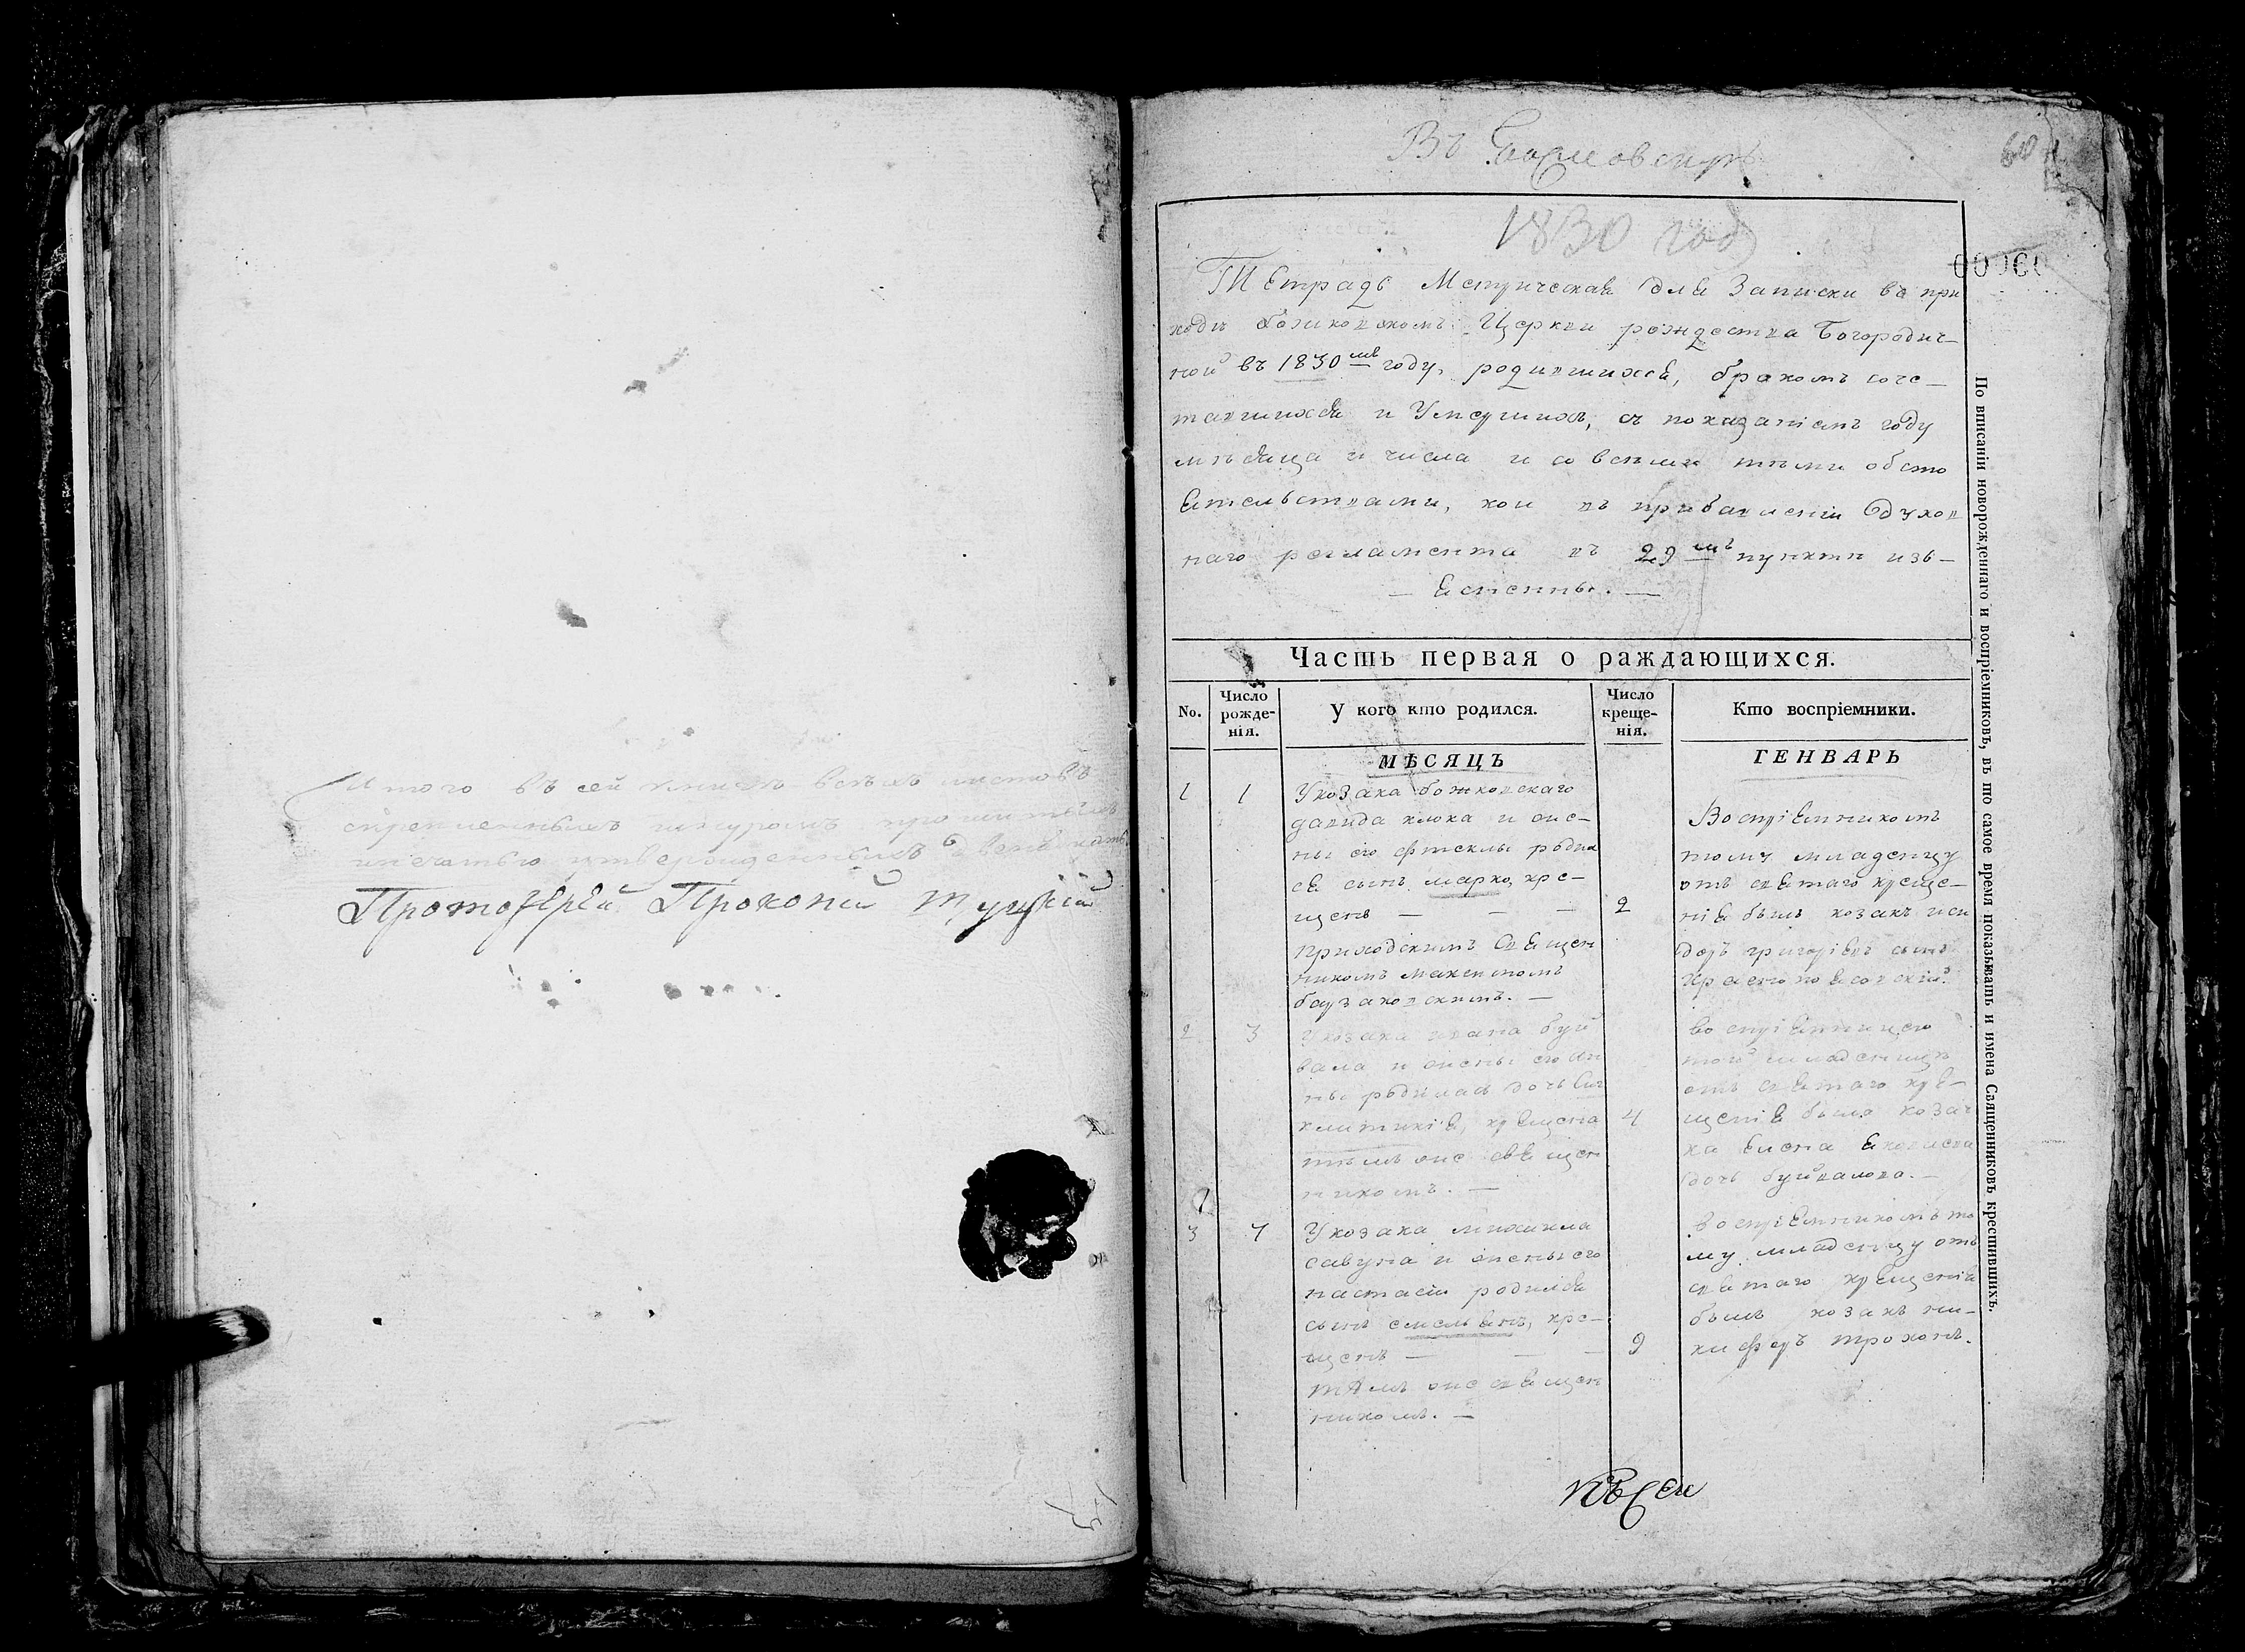 Итого въ сей книгѣ всѣхъ листовъ
скрепленныхъ шнуромъ
печатью утвержденныхъ
Протоіерей Прокопій
Въ
60
1830 год
00060
Тетрадь Метрическая для Записки въ при
ходѣ божковскомъ Церкви рождества Богородич-
ной въ 1830мъ году, родившихся, бракомъ соче-
тавшихся и Умершихъ, съ показаніемъ году
мѣсяца и числа и со всеми теми обсто
ятельствами, кои въ прибавленіи духов
наго регламента въ 29мъ пунктѣ изъ-
— яснены. —
Часть первая о раждающихся.
No.
Число рожде- нія.
У кого кто родился.
Число креще- нія.
Кто воспріемники.
МѢСЯЦЪ
ГЕНВАРЬ
1 1
У козака божковскаго
давида клюка и жe-
ны его феклы родил
ся сынъ марко, кре-
щенъ — — —
приходскимъ священ
никомъ максимомъ
базаковскимъ. —
2
Воспріемникомъ
тому младенцу
отъ святаго креще-
нія былъ козакъ иси
доръ григоріевъ сынъ
2 3
У козака ивана буй
вала и жены его ан
ны родилась дочь
крещена
тѣмъ же священ
никомъ. —
4
воспріемницею
той младеницѣ
отъ святаго кре-
щенія была козач
ка
дочь буйвалова. —
3 7
У козака михаила
савуна и жены его
настасіи родился
сынъ емельянъ, кре-
щенъ — — —
тѣмъ же священ
никомъ. —
9
воспріемникомъ то
му младенцу отъ
святаго крещенія
былъ козакъ ни-
кифоръ трохонъ.
По вписаніи новорожденнаго и воспріемниковъ, въ то самое время показывать и имена Священниковъ крестившихъ.